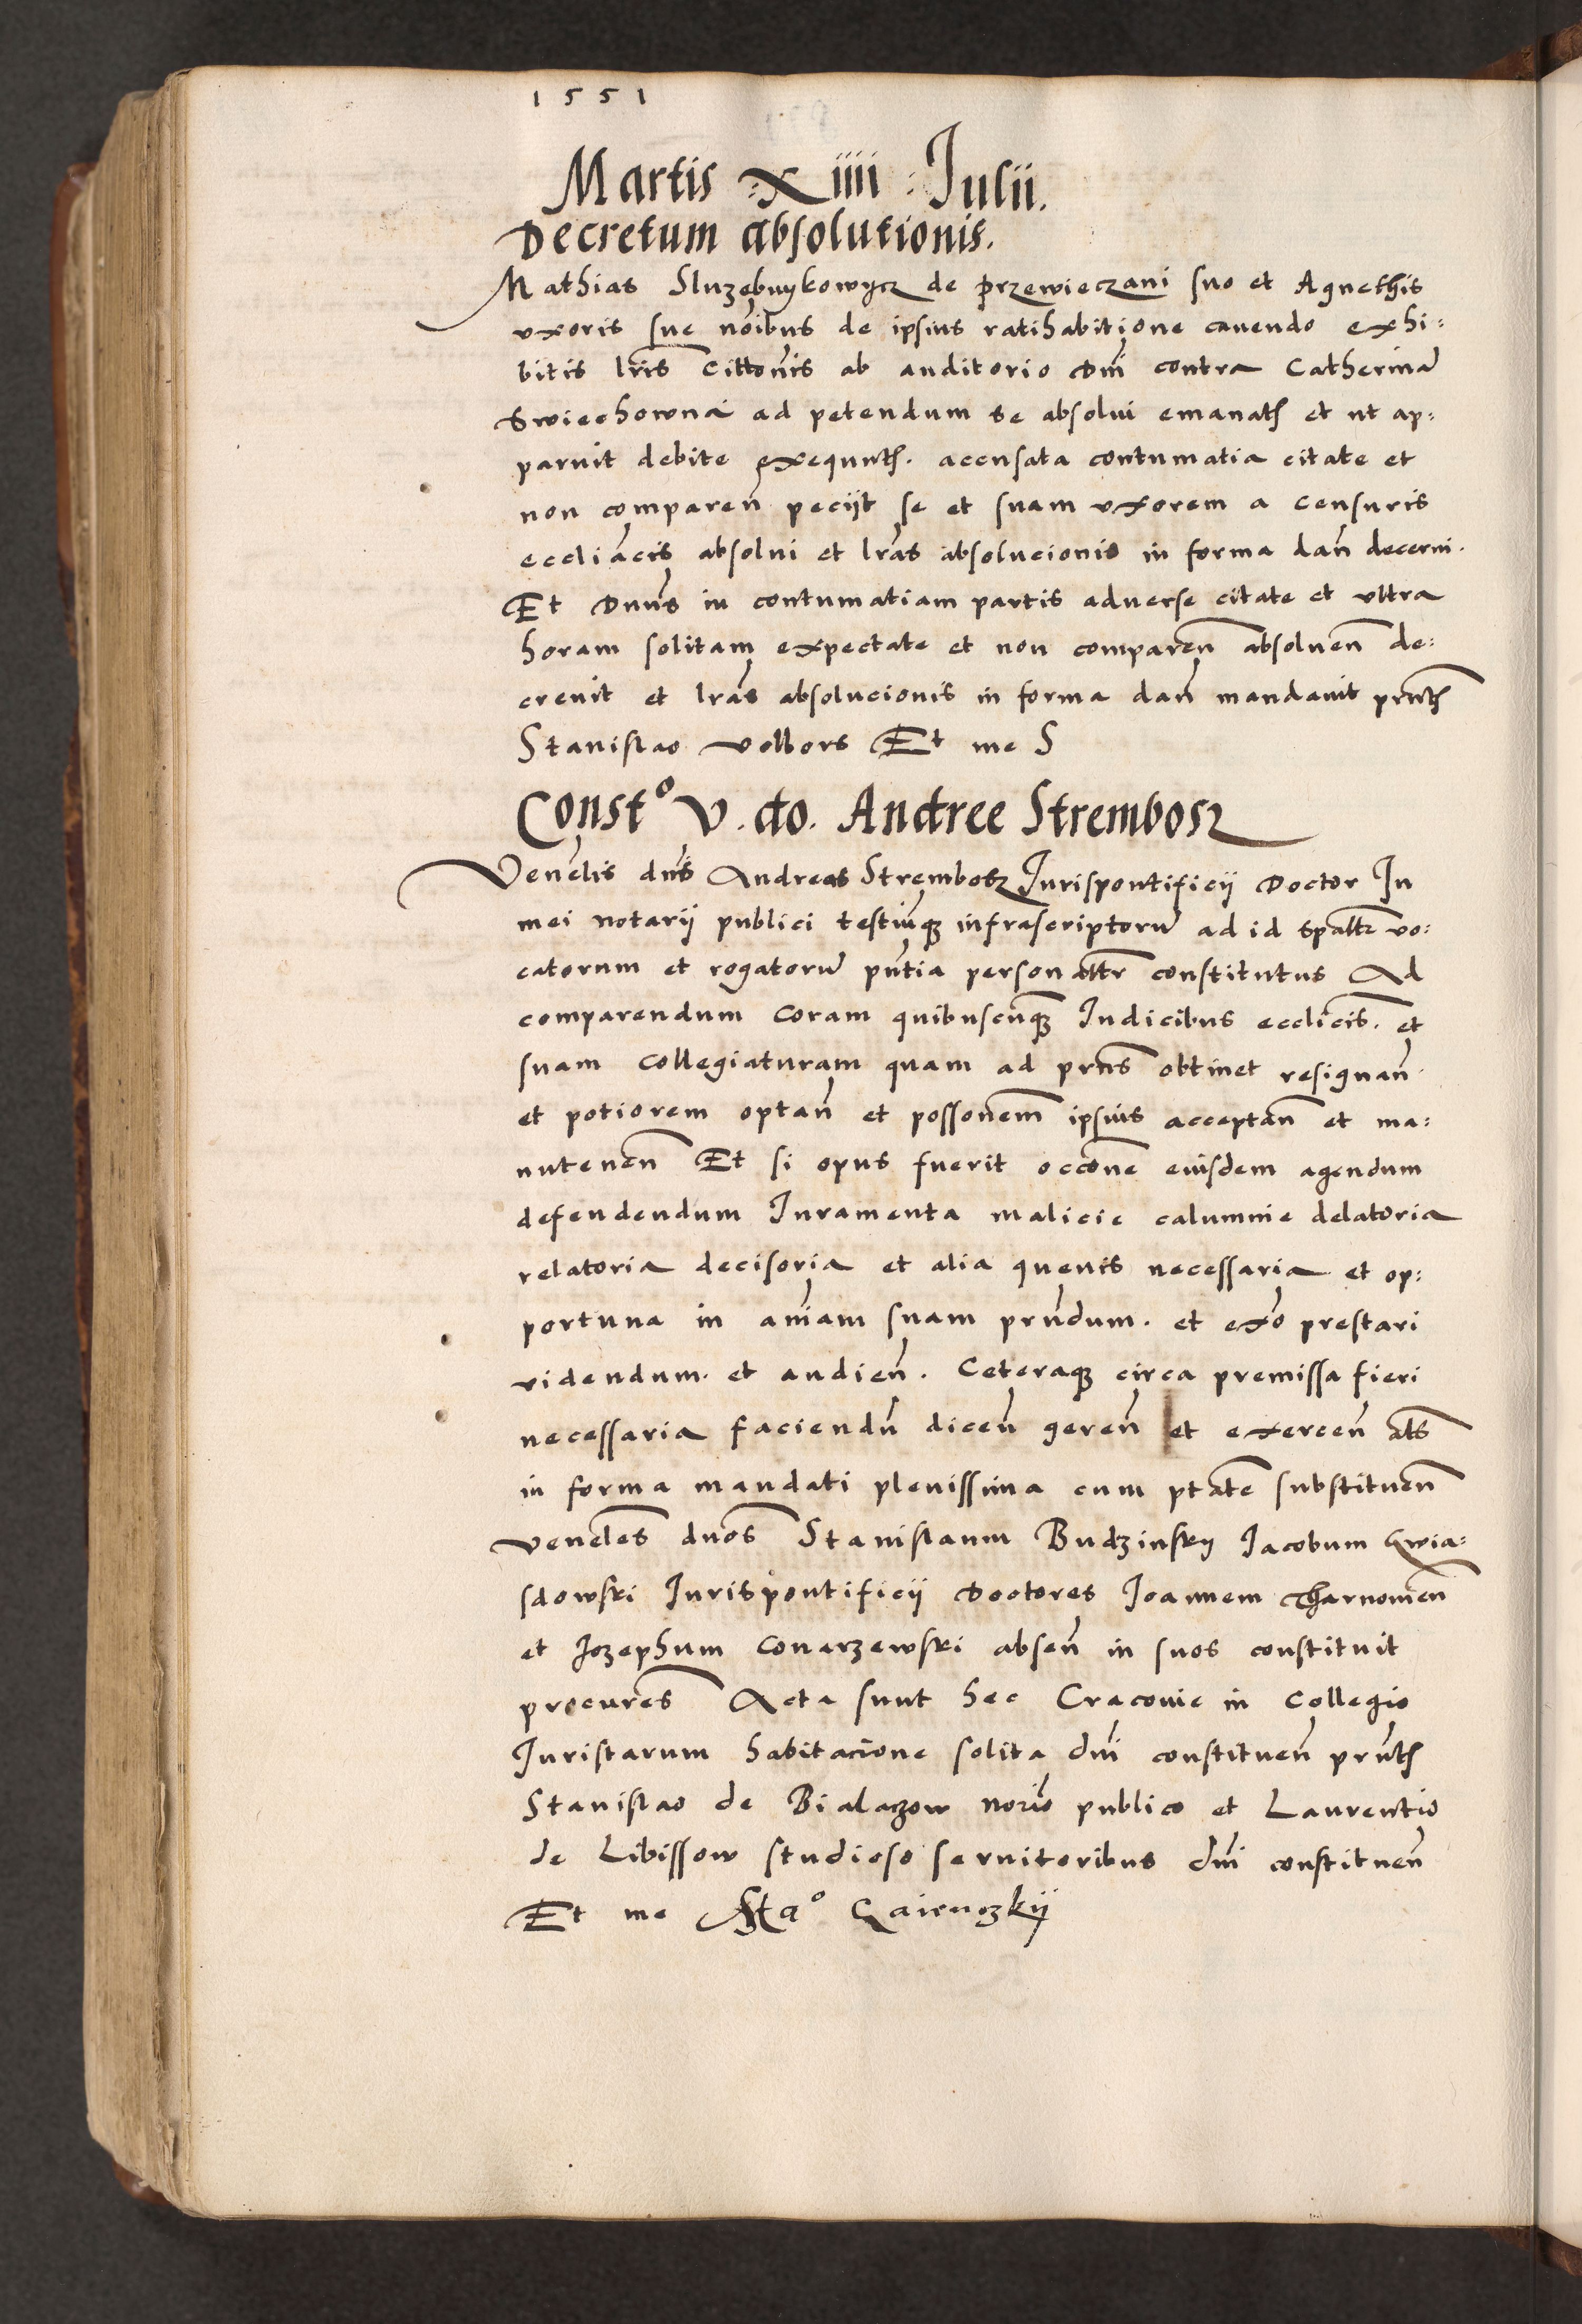 1551
Martis xiiii Julii.
Decretum absolutionis.
Mathias Sluzebnykowycz de przewieczani suo et Agnethis
vxoris sue nōibus de ipsius ratihabitione cauendo exhi=
bitis lr̄is Cittōnis ab auditorio Dnī contra Catherinā
Swiechownā ad petendum se absolui emanatꝭ et ut ap=
paruit debite exequutꝭ. accusata contumatia citate et
non comparen̄ peciit se et suam vxorem a censuris
eccliācis absolui et lrās absolucionis in forma dan̄ decerni.
Et Dnūs in contumatiam partis aduerse citate et vltra
horam solitam expectate et non comparen̄ absoluen̄ de=
creuit et lrās absolucionis in forma dan̄ mandauit prn̄tꝭ
Stanislao volbors Et me S
Constᵒ V. do. Andree Strembosz
Venēlis dnūs Andreas Strembosz Jurispontificij Doctor In
mei notarij publici testiūqꝫ infrascriptorū ad id spāltr vo=
catorum et rogatorū pn̄tia personāltr constitutus Ad
comparendum coram quibuscūqꝫ Iudicibus ecclicīs. et
suam collegiaturam quam ad prn̄s obtinet resignan̄.
et potiorem optan̄ et possonēm ipsius acceptan̄ et ma=
nuten̄en Et si opus fuerit occōne eiusdem agendum
defendendum Iuramenta malicie calumnie delatoria
relatoria decisoria et alia queuis necessaria et op=
portuna in anīam suam prn̄dum. et exō prestari
videndum. et audien̄. Ceteraqꝫ circa premissa fieri
necessaria faciendū dicen̄ geren̄ et exercen̄ al̄s
in forma mandati plenissima cum ptāte substituen̄
venēles dnōs Stanislaum Budzinsky Jacobum Gwia=
sdowski Jurispontificij Doctores Joannem Tharnouien̄
et Jozephum Conarzewski absen̄ in suos constituit
procurēs Acta sunt hec Cracouie in Collegio
Juristarum habitacione solita dnī constituen̄ prn̄tꝭ
Stanislao de Bialaczow norīo publico et Laurentio
de Libissow studioso seruitoribus dnī constituen̄
Et me Staᵒ